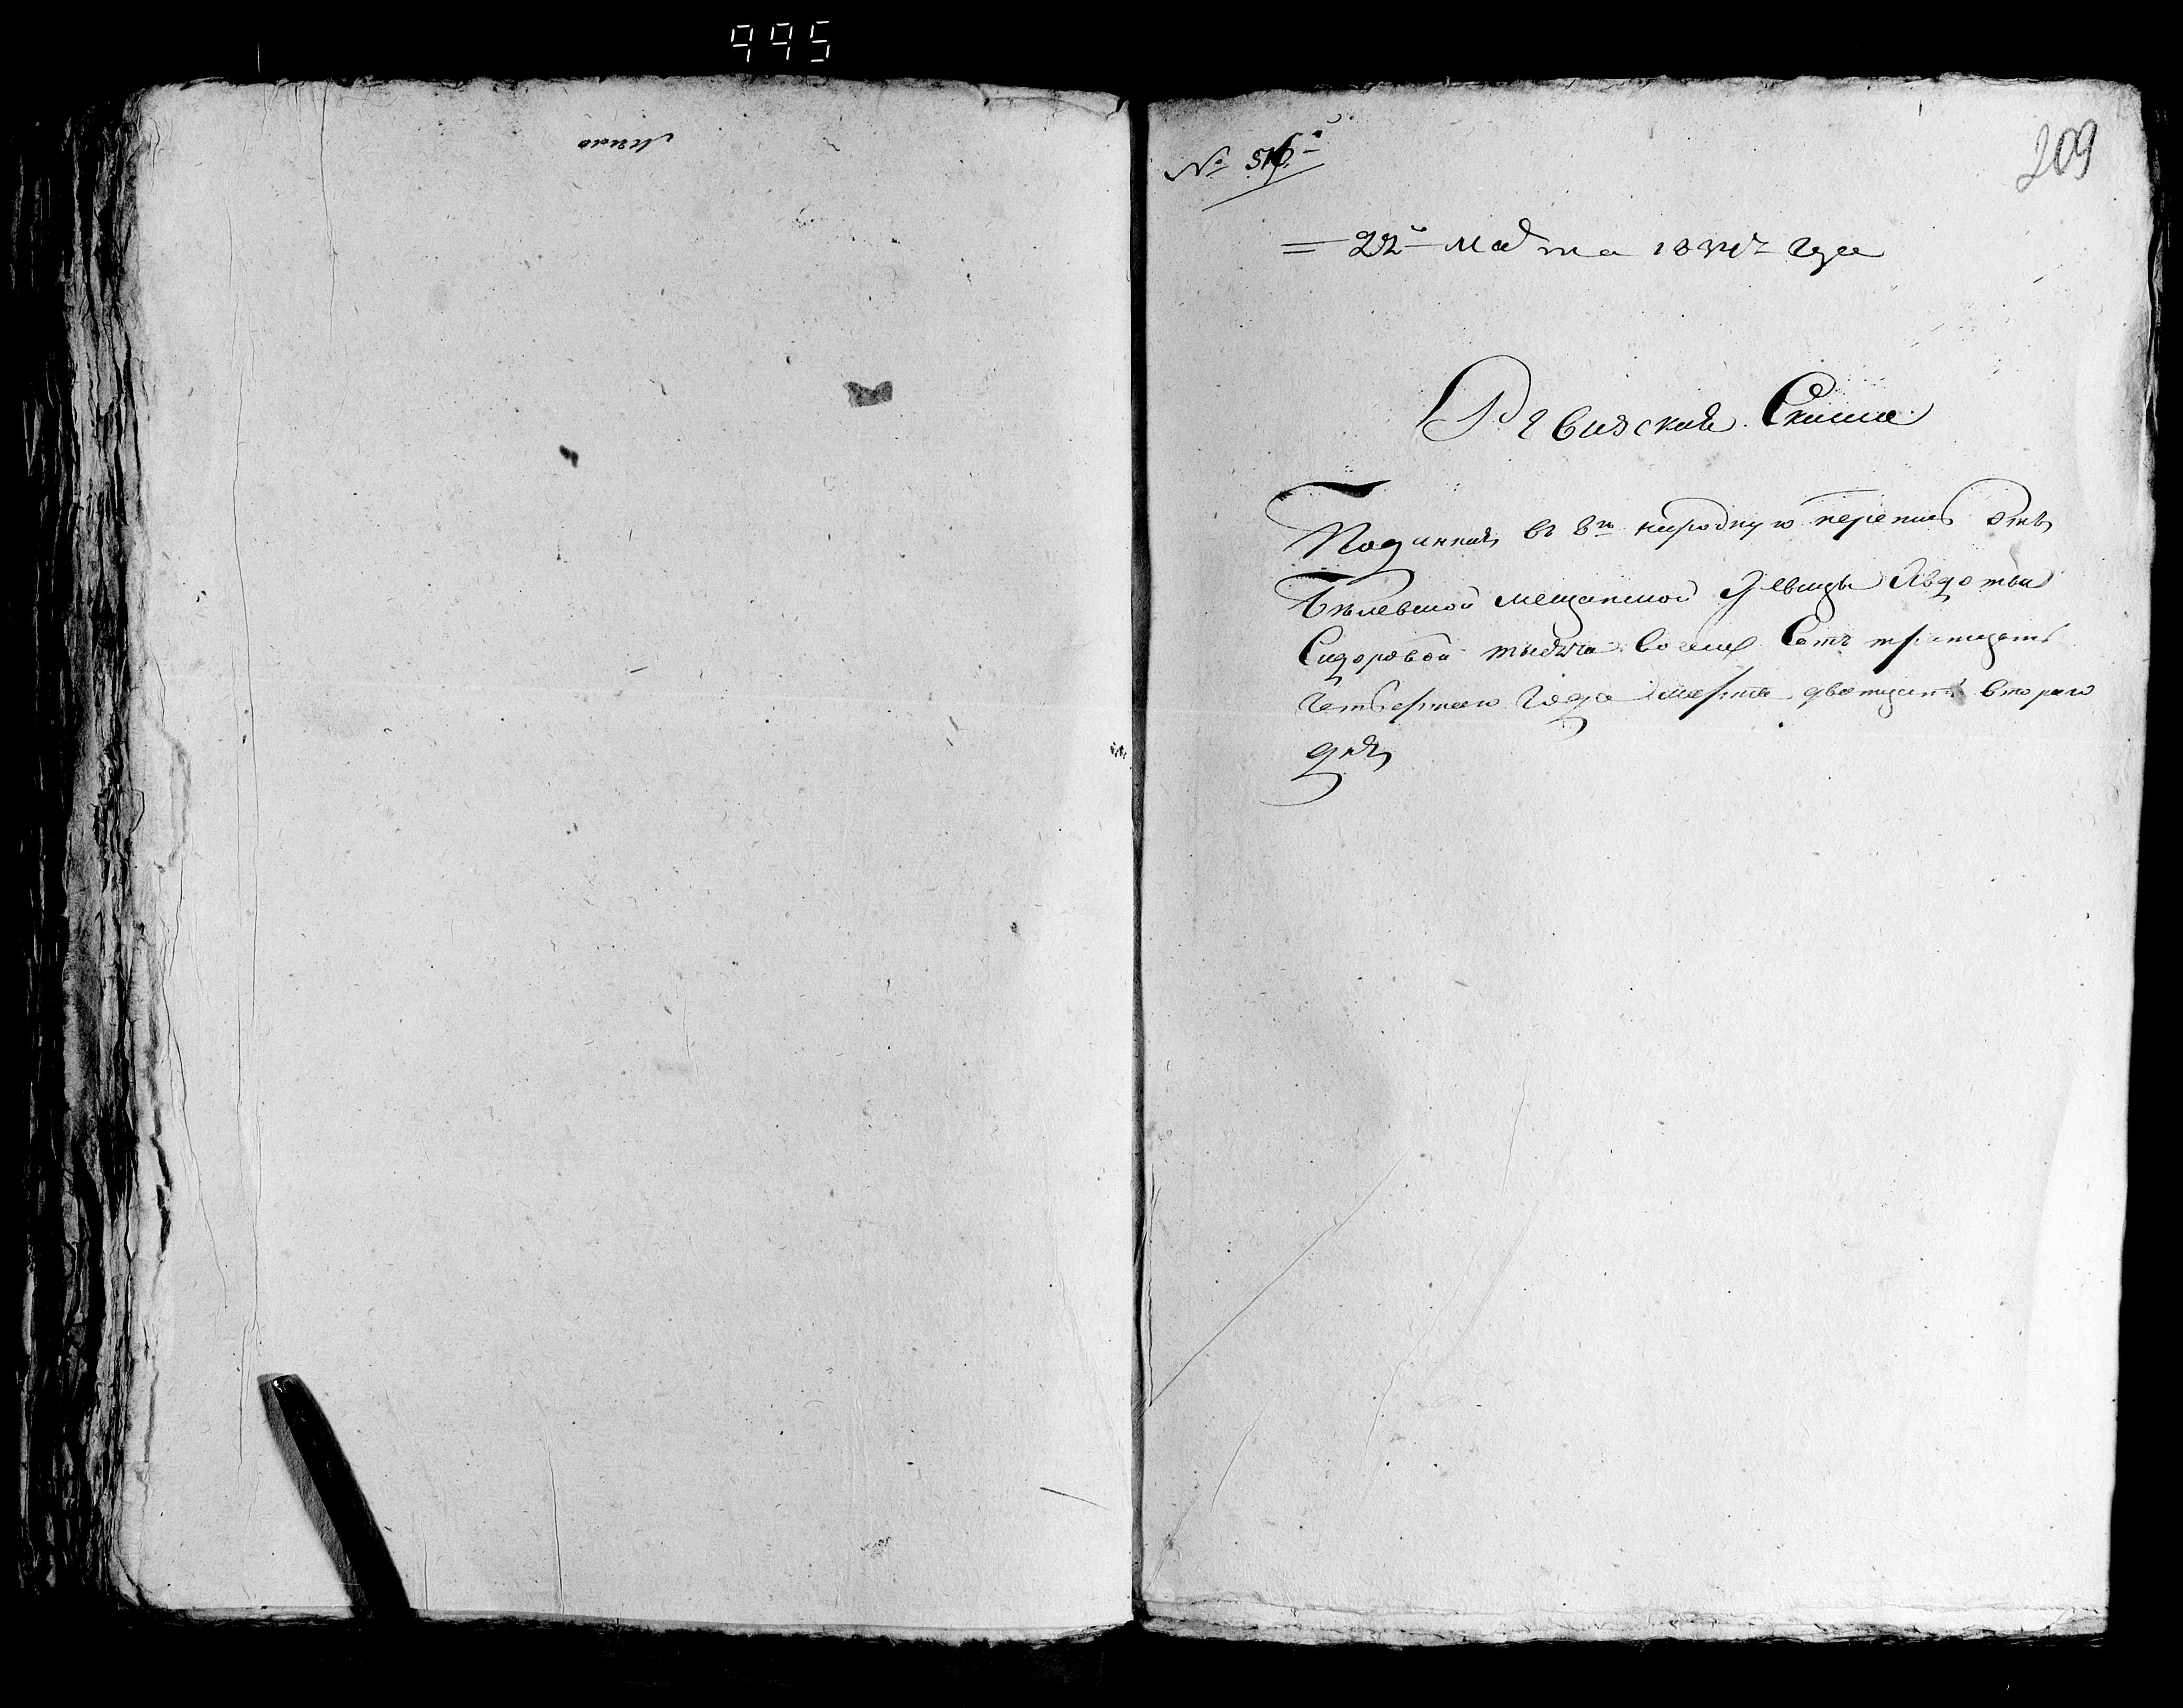 995
№ 516й
209
= 22го Марта 1834го Года
Ревизская Скаска
Поданная въ 8ю народную перепись отъ
Белевской мещанской Девицы Авдотьи
Сидоровой тысяча восемь Сотъ тритцать
Четвертаго Года марта дватцать втораго
дня